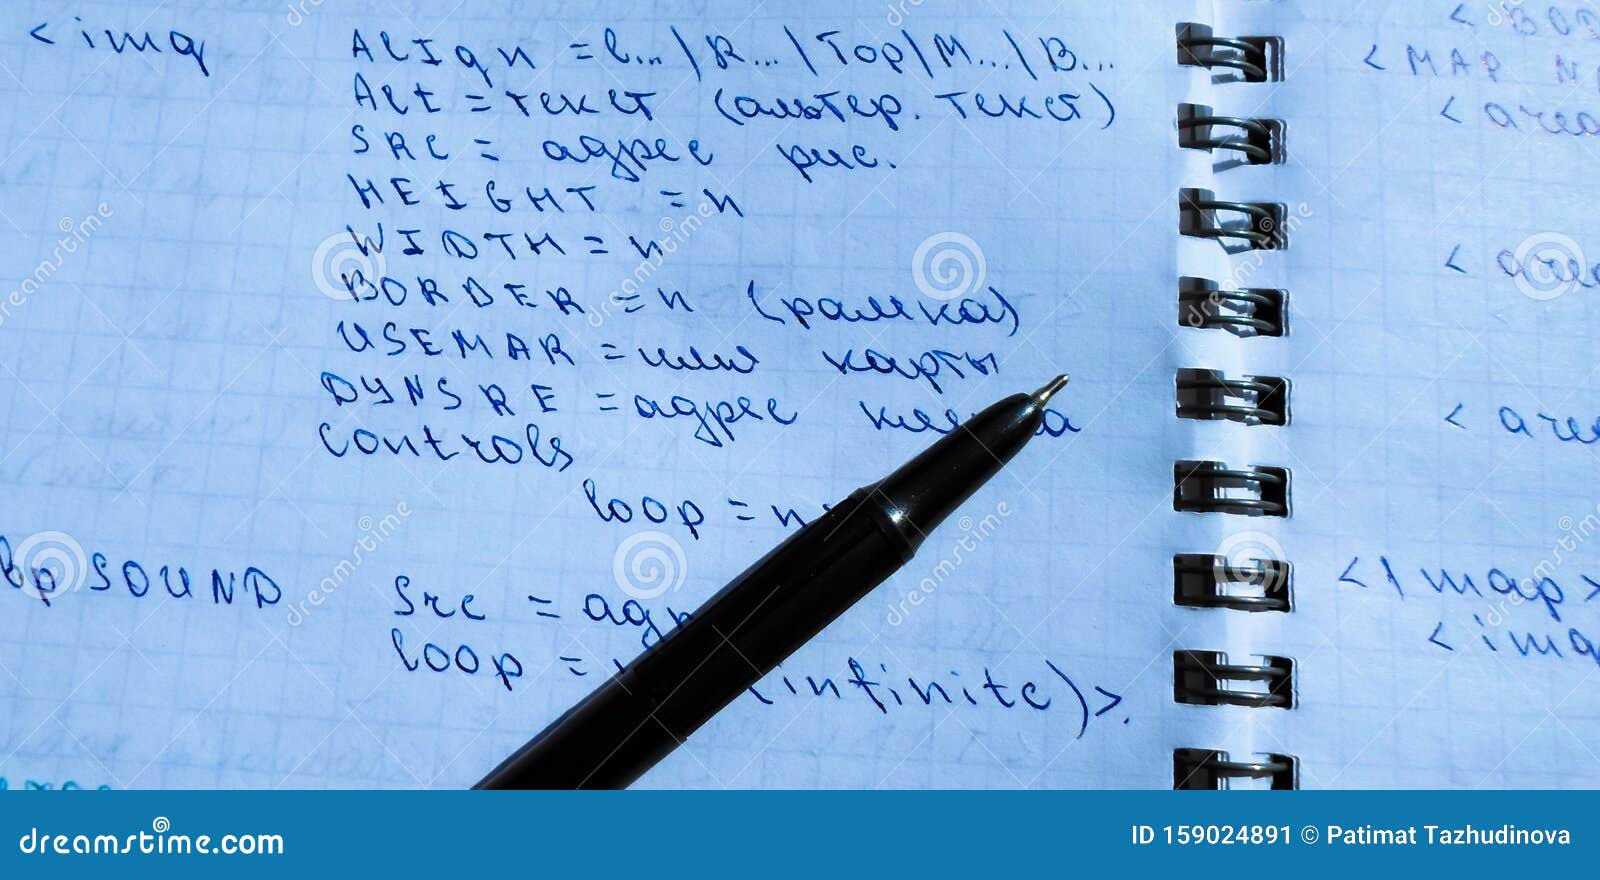 <img ALIGN = l... | R... | Top | M... | B...
Alt = текст (альтер. текст)
SRC = адрес рис.
HEIGHT = n
WIDTH = n
BORDER = n (рамка)
USEMAP = имя карты
DYNSRE = адрес
controls
loop = n
SOUND Src =
loop = (infinite)>.
<MAP
<area
<area
<area
</map>
<img
dreamstime.com
ID 159024891 © Patimat Tazhudinova